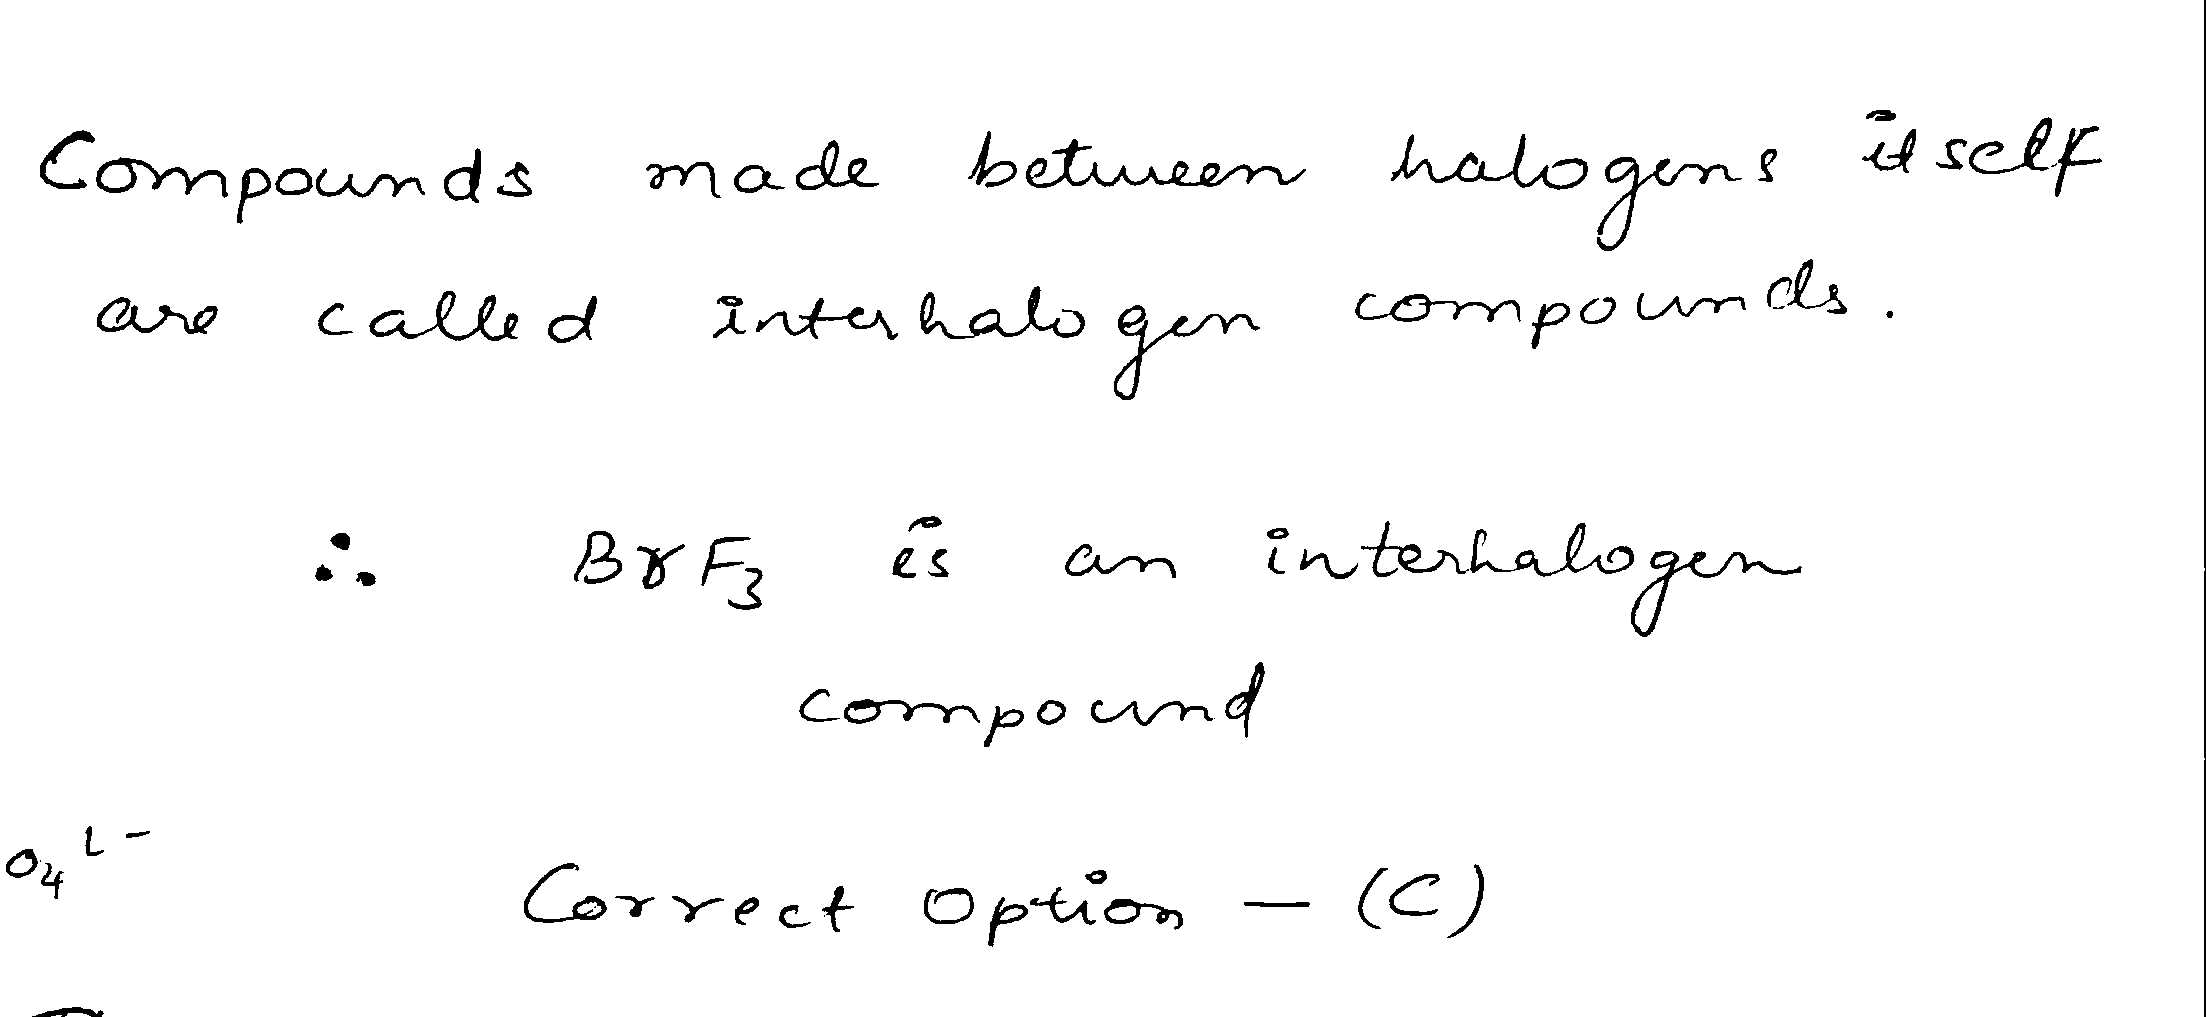 Compounds made between halogens itself
are called interhalogen compounds.
∴ BrF₃ is an interhalogen
compound
O₄
Correct Option – (C)